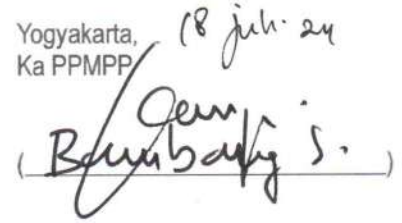 Yogyakarta, 18 juli. 24
Ka PPMPP
(Bambang S.)